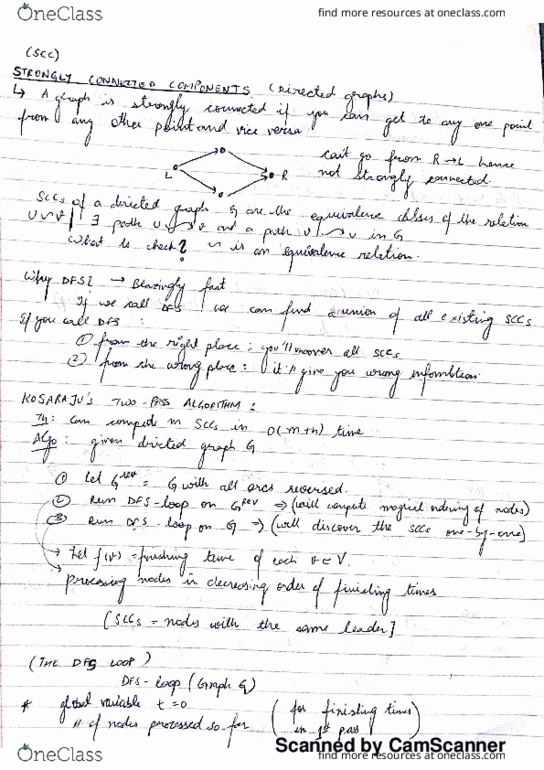 OneClass
find more resources at oneclass.com
(SCC)
STRONGLY CONNECTED COMPONENTS (Directed graphs)
↳ A graph is strongly connected if you can get to any one point
from any other point and vice versa
L
R
can't go from R→L hence
not strongly connected.
SCCs of a directed graph G are the equivalence classes of the relation
u~v | ∃ path u⇝v and a path v⇝u in G
What to check? ~ is an equivalence relation.
Why DFS? → Blazingly fast
If we call DFS we can find a union of all existing SCCs
If you call DFS :
① from the right place : you'll uncover all SCCs
② from the wrong place : it'll give you wrong information.
KOSARAJU'S TWO-PASS ALGORITHM :
Th: can compute m SCCs in O(m+n) time
Algo: given directed graph G
① Let Grev = G with all arcs reversed.
② Run DFS-loop on GREV ⇒ (will compute magical ordering of nodes)
③ Run DFS-loop on G → (will discover the SCCs one-by-one)
→ Let f(v) = finishing time of each v∈V.
→ processing nodes in decreasing order of finishing times
[SCCs = nodes with the same leader]
(THE DFS LOOP)
DFS-loop (Graph G)
* global variable t=0
# of nodes processed so far
(for finishing times
in 1st pass)
Scanned by CamScanner
OneClass
find more resources at oneclass.com